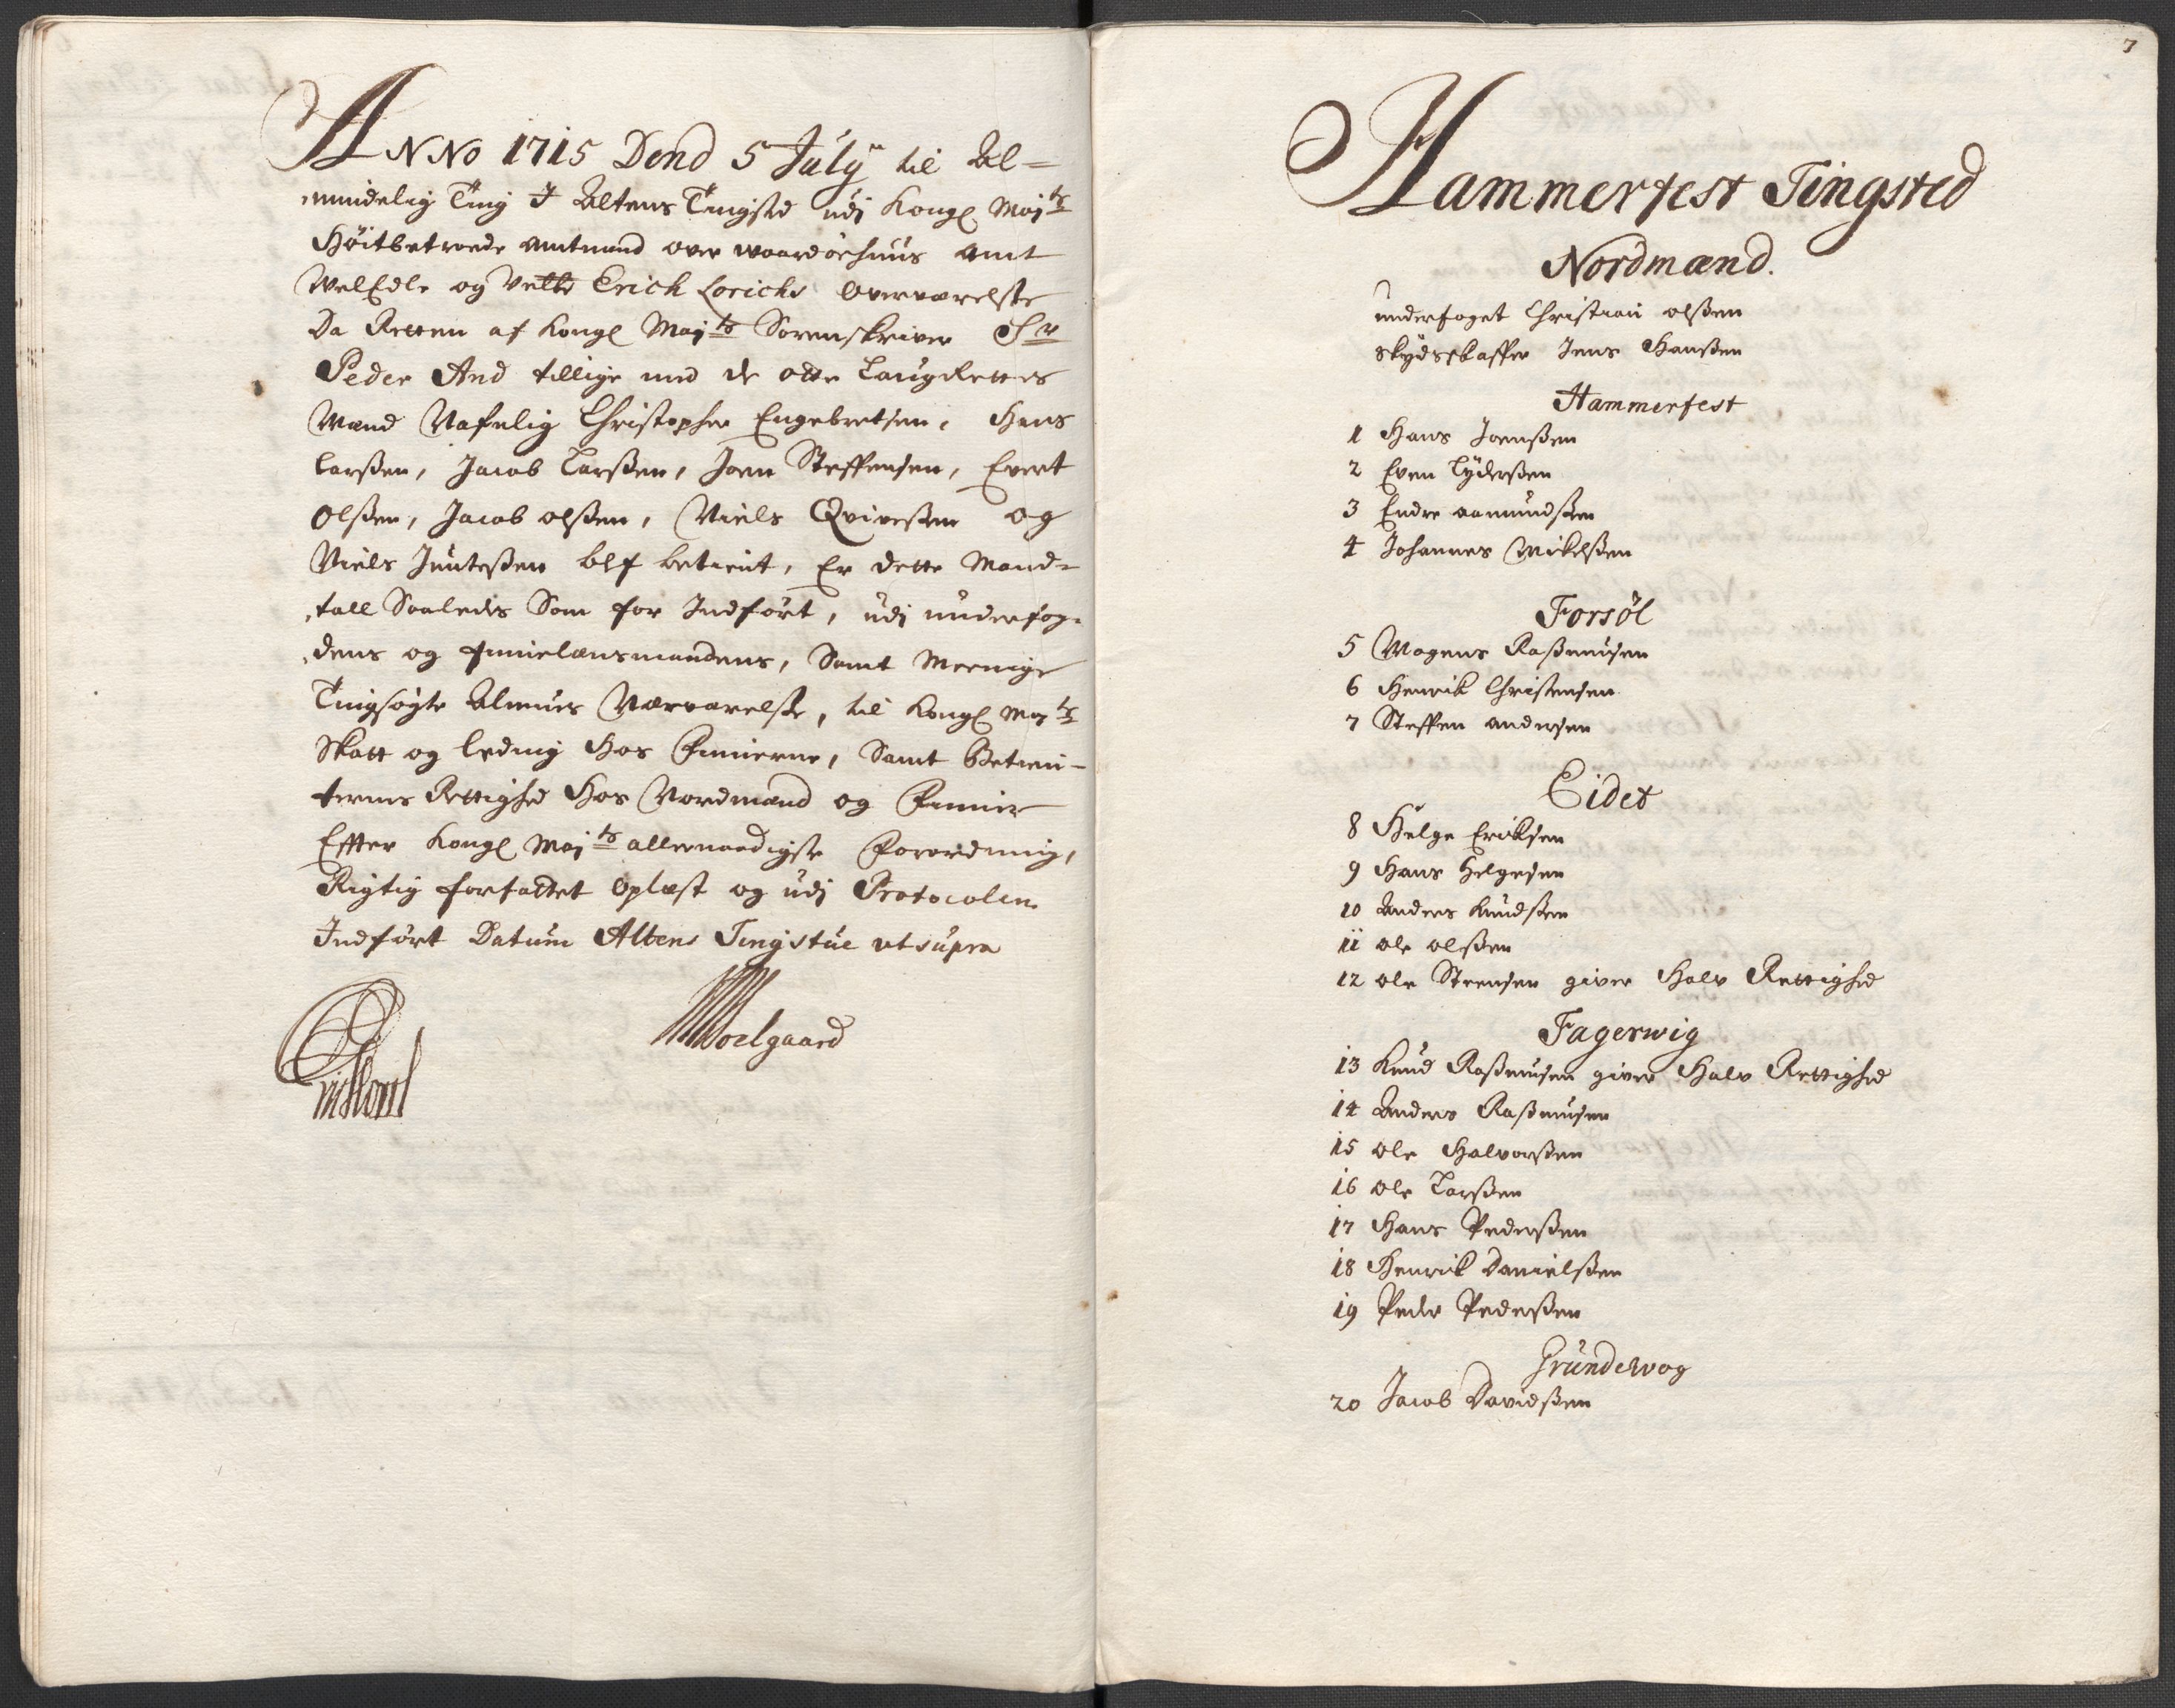 ANNo 1715 Dend 5 July til Al=
mindelig Ting I Altens Tingsted udj Kongl Maj.ts
Höitbetroede amtmand over waardöehuus amt
WelEdle og Erich Lorichs Overværelse
Da Retten af Kongl Maj.ts Sorenskriver Sr
Peder And tillige med de otte Laugrettes
Mænd Nafnlig Christopher Engebretsen, Hans
Larßen, Jacob Larßen, Joen Steffensen, Evert
Olßen, Jacob olßen, Niels Qviveßen og
Niels Junteßen blef betient, Er dette Mand=
tall Saaledes Som for Indfört, udj underfog=
dens og finnelænsmandens, Samt Meenige
Tingsögte Almues Nærværelse, til Kongl Maj.ts
Skatt og leding Hos Finnerne, Samt Betien=
ternes Rettighed Hos Nordmænd og Finner
Effter Kongl Maj.ts allernaadigste Forordning,
Rigtig forfattet Oplæst og udj Protocolen
Indfört Datum Altens Tingstue ut supra
7
Hammerfest Tingsted
Nordmænd.
underfoget Christian olßen
Skydsskaffer Jens Hanßen
Hammerfest
1 Hans Joenßen
2 Even Lyderßen
3 Endre aamundßen
4 Johannes Mikelßen
Forsöl
5 Mogens Raßmusen
6 Henrik Christensen
7 Steffen andersen
Eidet
8 Helge Eriksen
9 Hans Helgesen
10 Anders Knudßen
11 ole olßen
12 ole Steensen giver Halv Rettighed
Fagerwig
13 Knud Raßmusen giver Halv Rettighed
14 Anders Raßmusen
15 ole Halvorßen
16 ole Larßen
17 Hans Pederßen
18 Henrik Danielßen
19 Peder Pederßen
Grundewog
20 Jacob Davidßen